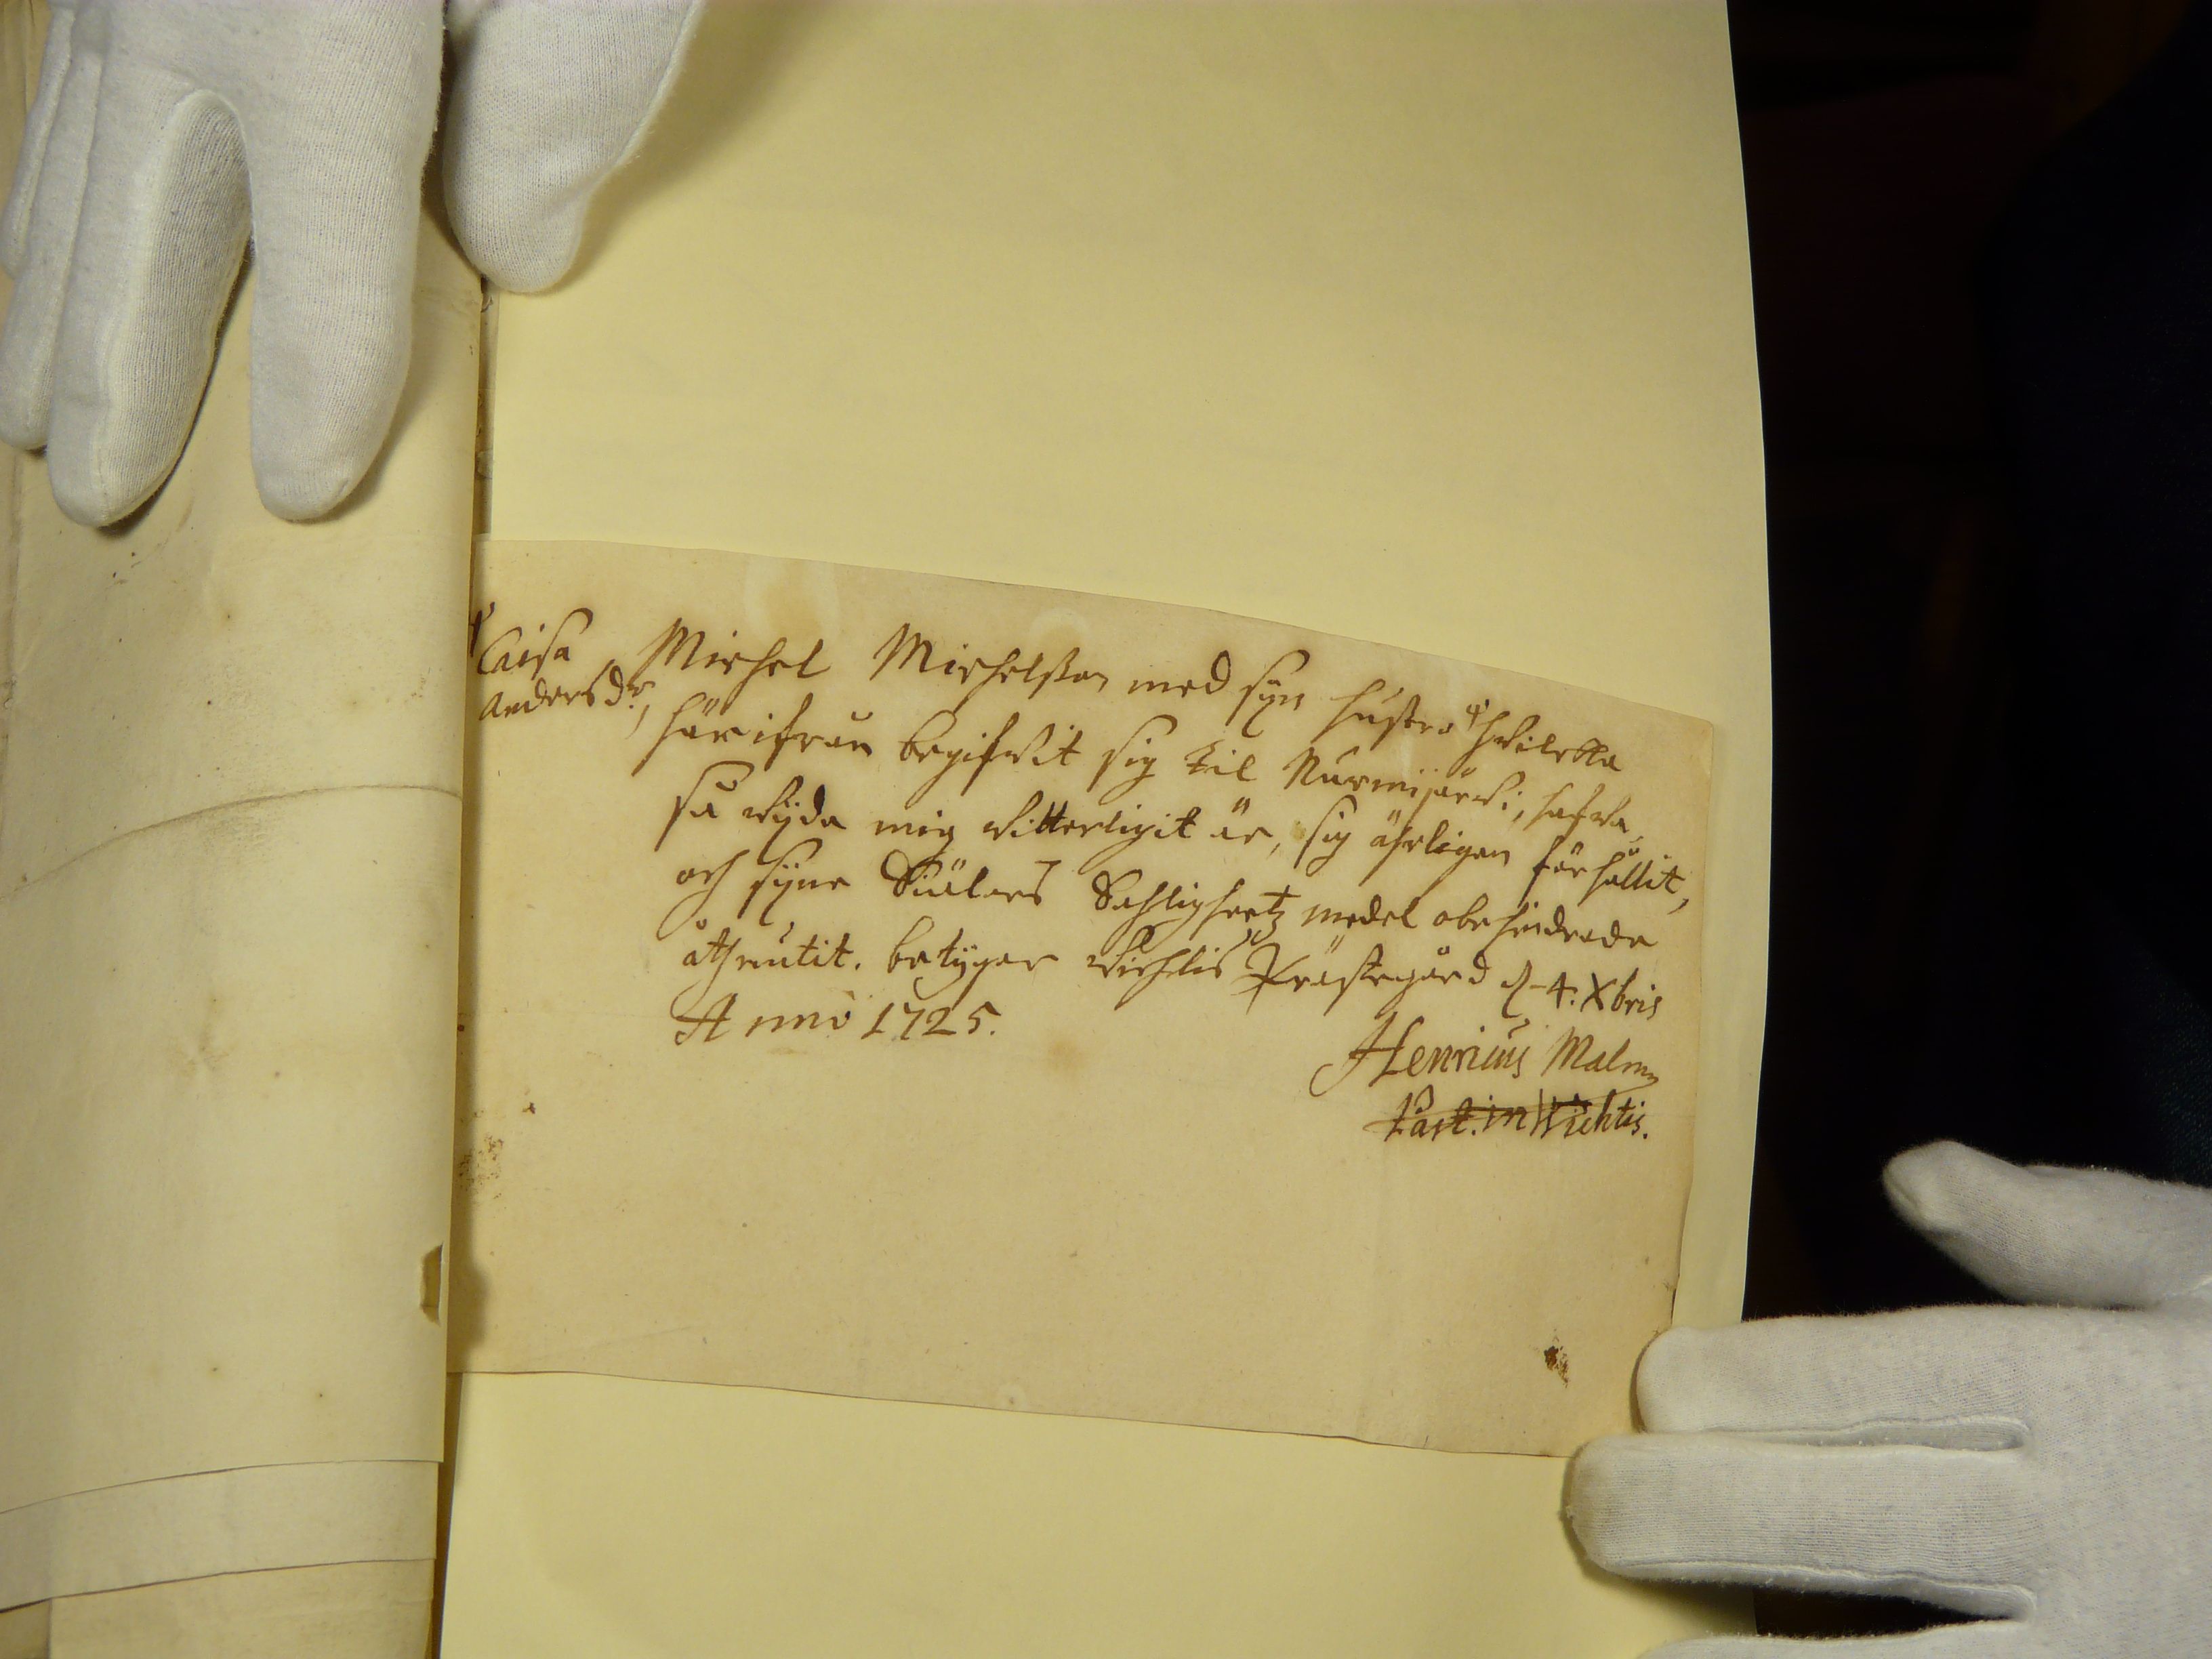 Caisa
Andersdr,
Michel Michelsson med syn hustro hvilcka
härifrån begifvit sig til Nurmijärvi, hafva,
så vijda mig vitterligit är, sig ährligen förhållit,
och syne Siälars Sahligheetz medel obehindrade
åthniutit. betygar Vichtis Prästegård d. 4. Xbris
Anno 1725.
Henricus Malmn
Past. in Wichtis.